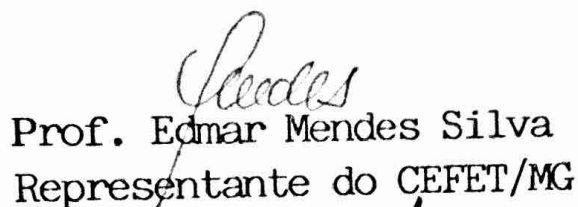 Prof. Edmar Mendes Silva
Representante do CEFET/MG